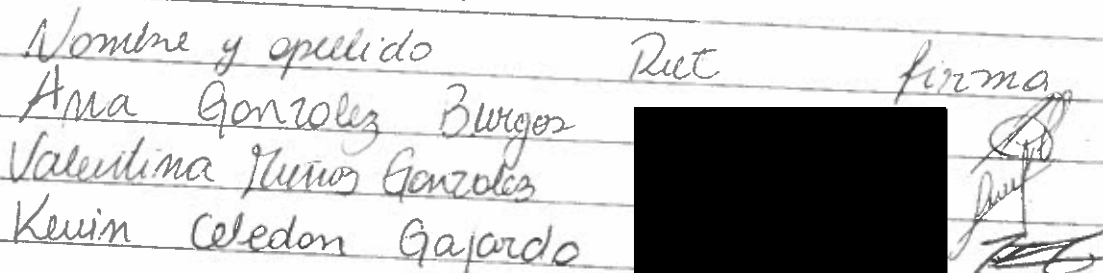 Nombre y apellido Rut firma
Ana Gonzolez Burgos
Valentina Muños Gonzolez
Kevin Celedon Gajardo